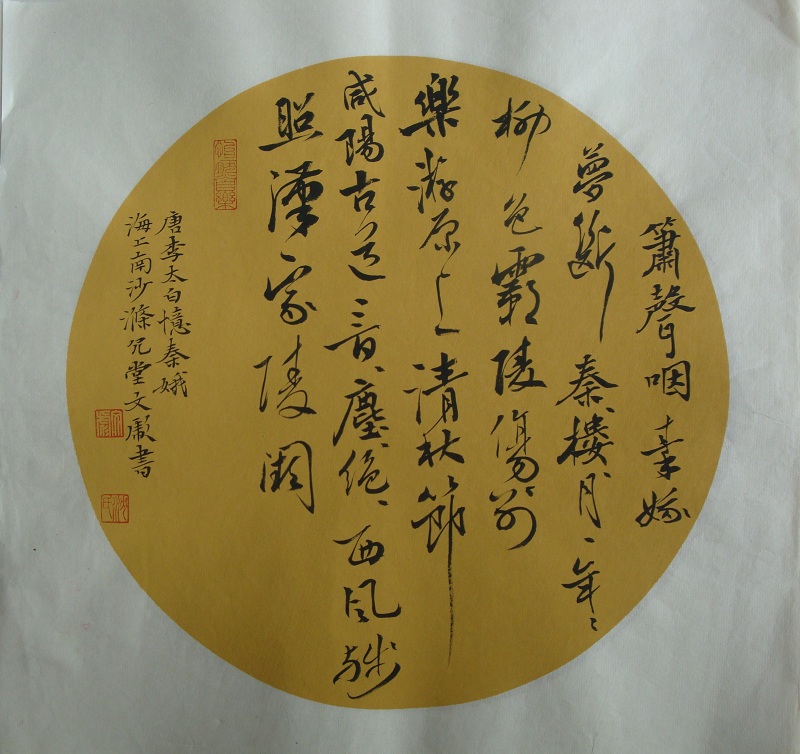 簫聲咽秦娥
夢斷秦樓月、年〻
柳色霸陵傷別
樂游原上清秋節
咸陽古道音塵絕、西風殘
照漢家陵闕
唐李太白憶秦娥
海上南沙滌凡堂文書